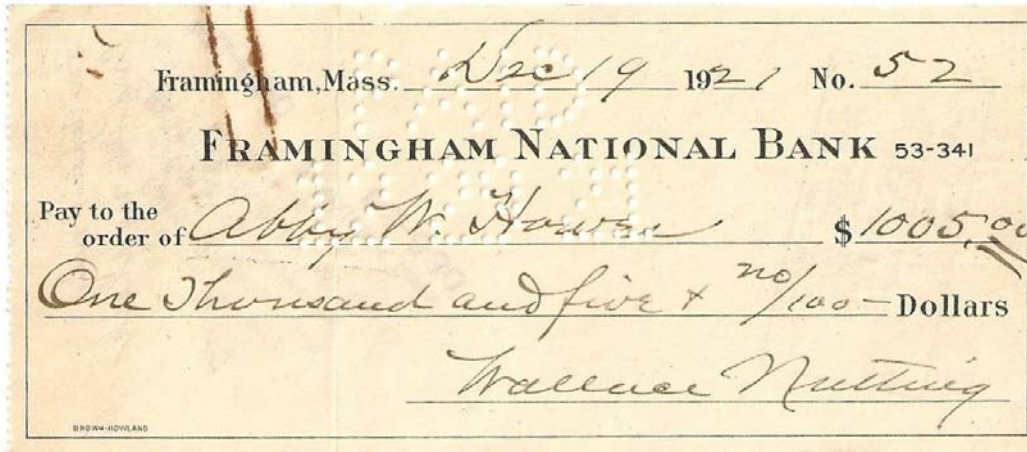 Framingham, Mass. Dec 19 1921 No. 52
FRAMINGHAM NATIONAL BANK 53-341
Pay to the
order of Abby W. $1005.00
One Thousand and five & no/100 Dollars
Wallace Nutting
BROWN-HOWLAND